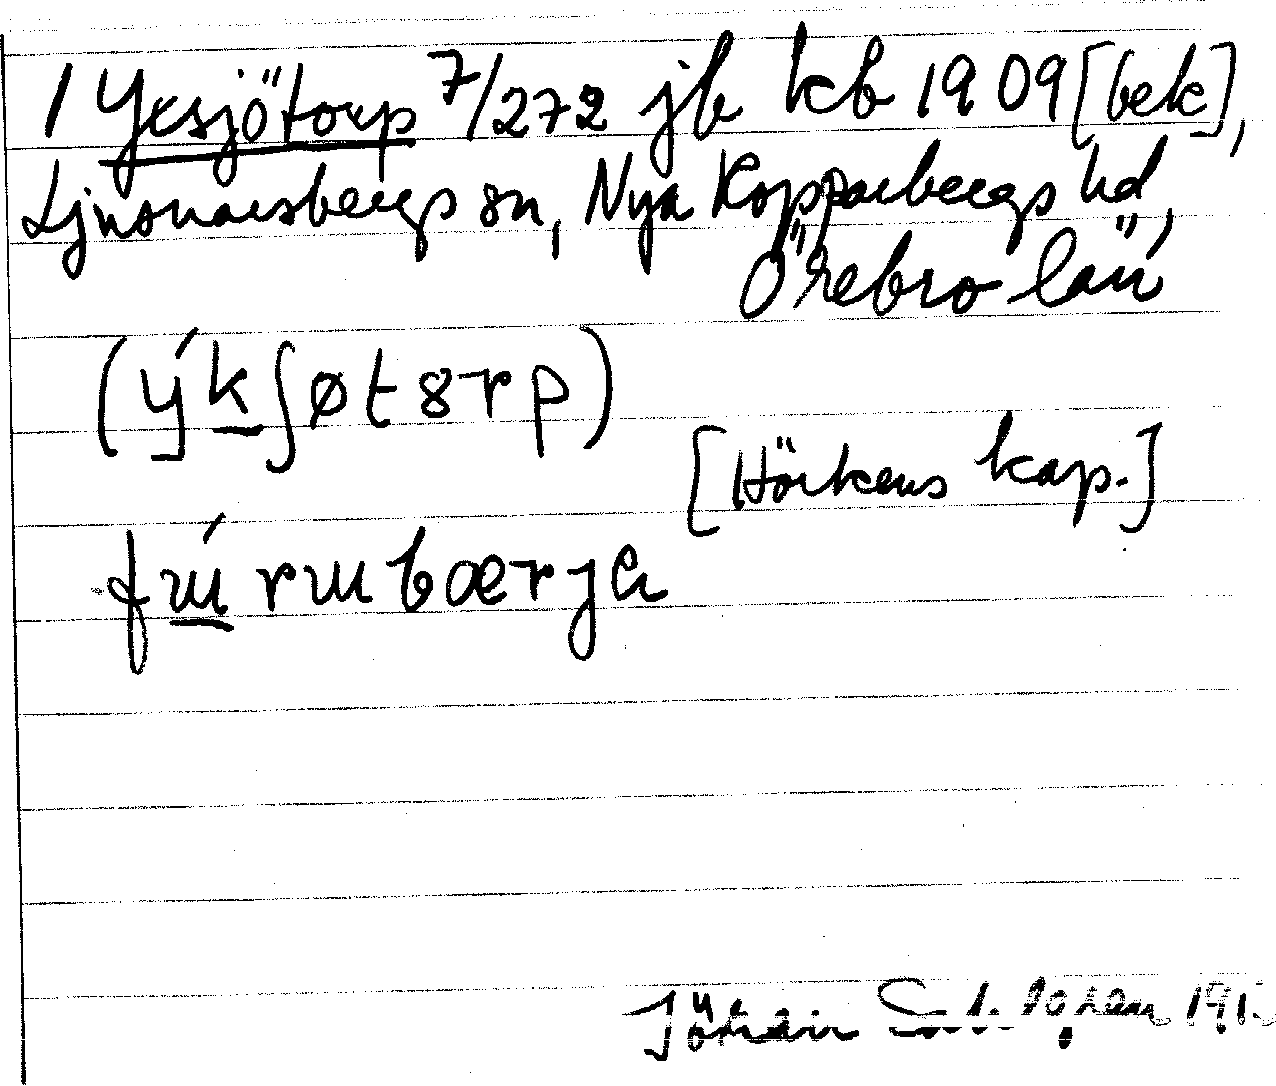 1 Yxsjötorp 7/272 jb kb 1909 [bek],
Ljusnarsbergs sn, Nya Kopparbergs hd,
Örebro län
(ýkʃøt8rp)
[Hörkens kap.]
fɯ́rɯbærja
Jöran Sahlgren